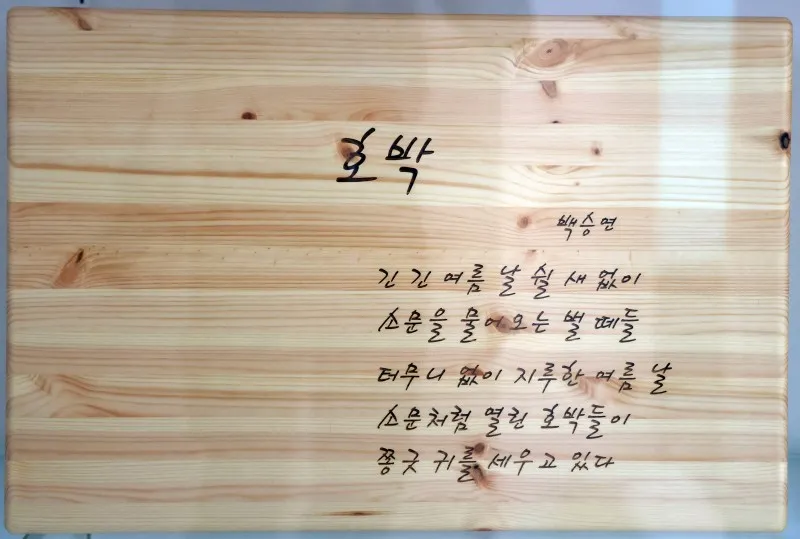 호박
백승연
긴 긴 여름 날 쉴 새 없이
소문을 물어오는 벌 떼들
터무니 없이 지루한 여름 날
소문처럼 열린 호박들이
쫑긋 귀를 세우고 있다